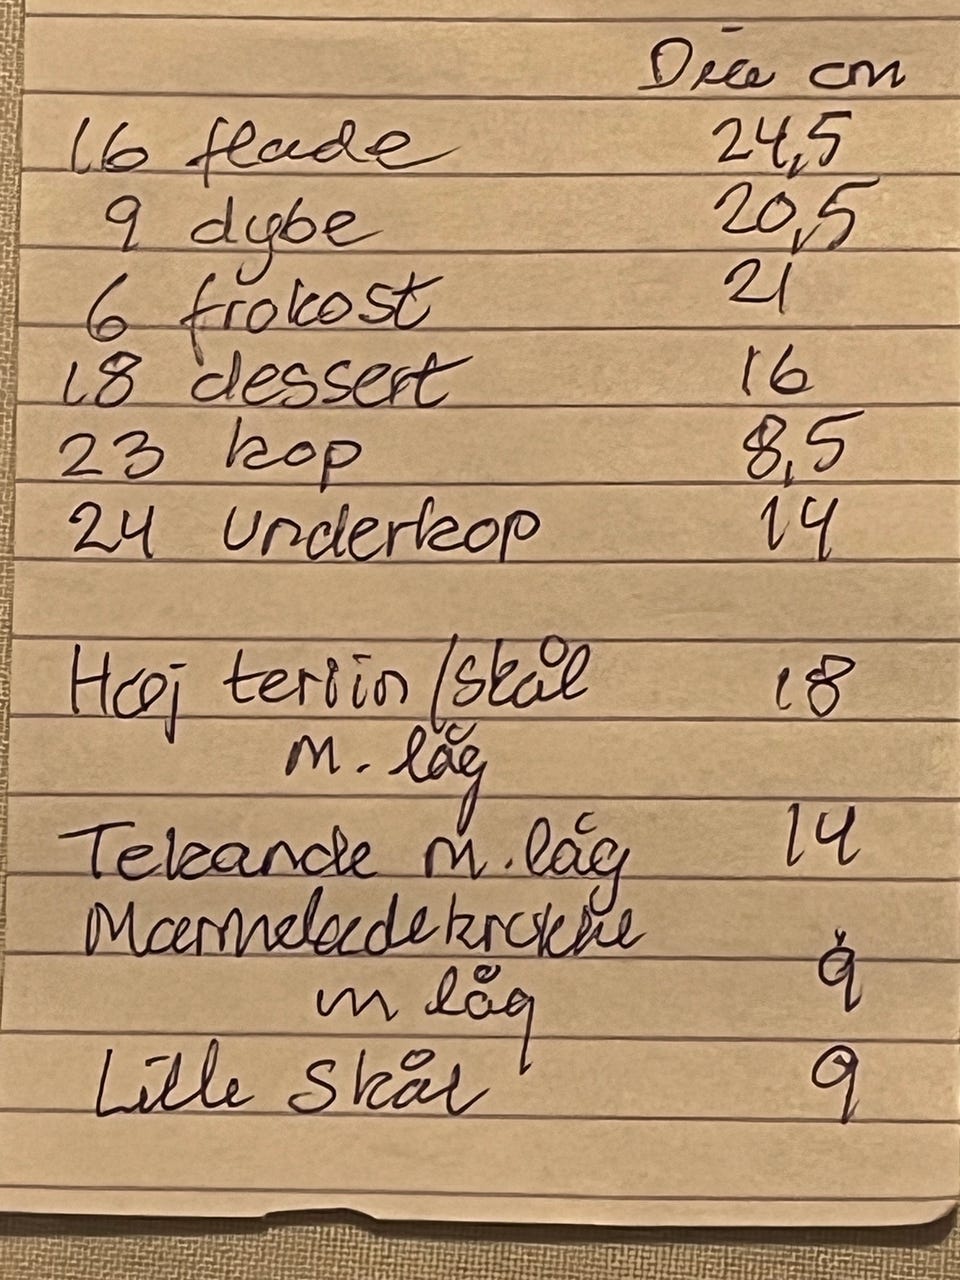 Dia cm
16 flade 24,5
9 dybe 20,5
6 frokost 21
18 dessert 16
23 kop 8,5
24 underkop 14
Høj teriin/skål 18
m. låg
Tekande m. låg 14
Marmeladekrukke
m låg 9
Lille skål 9